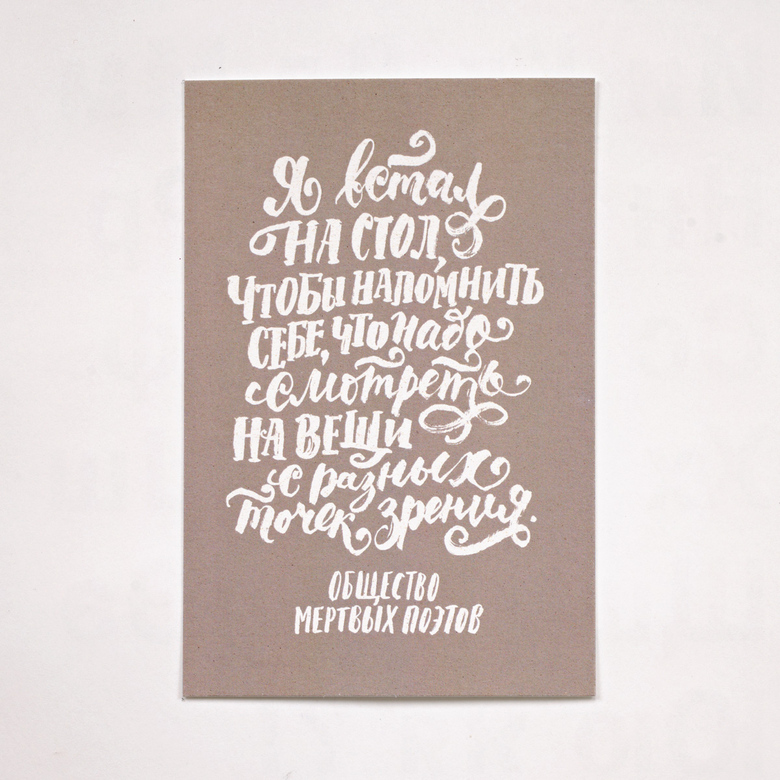 Я встал
НА СТОЛ,
ЧТОБЫ НАПОМНИТЬ
СЕБЕ, ЧТО надо
смотреть
НА ВЕЩИ
с разных
точек зрения.
ОБЩЕСТВО
МЕРТВЫХ ПОЭТОВ